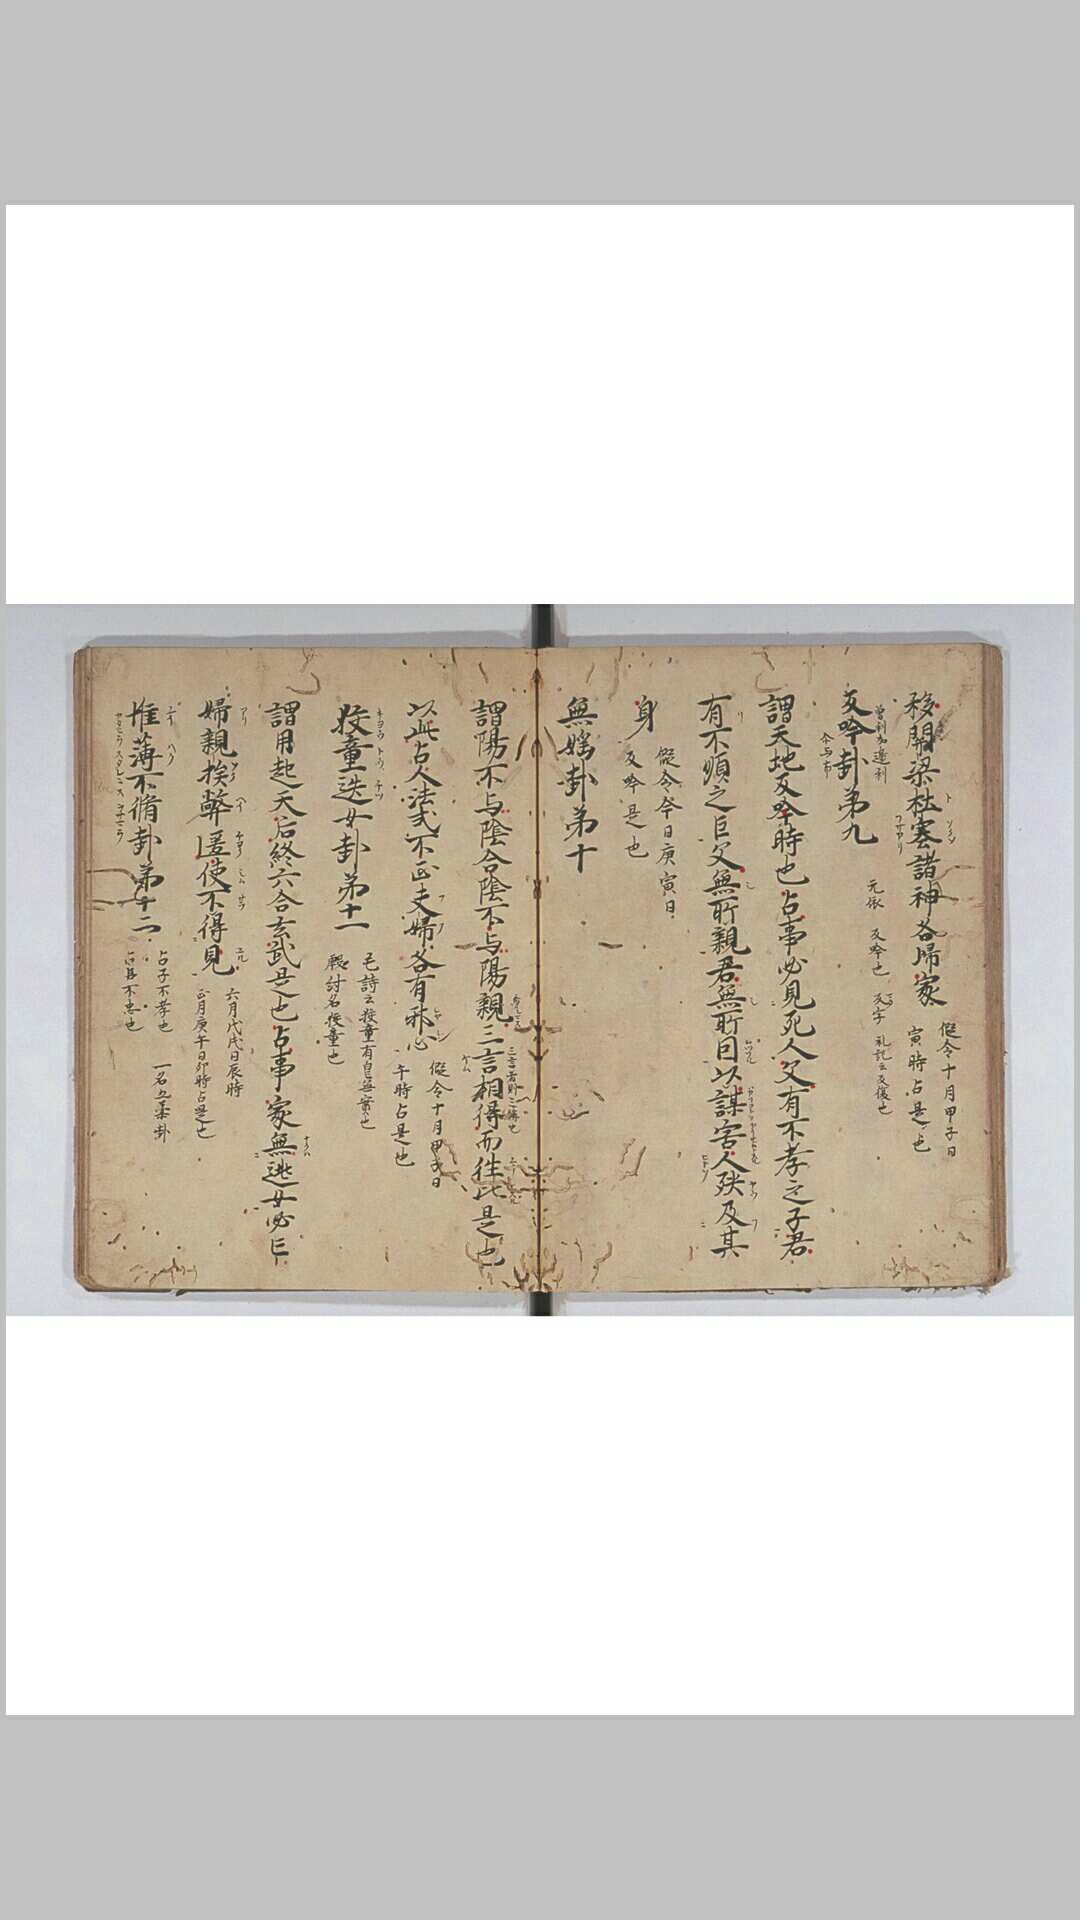 移開梁杜塞諸神各帰家
假令十月甲子日
寅時占是也
反吟卦第九
元依 反吟也 反字 礼記云反復也
謂天地反吟時也占事必見死人父有不孝之子君
有不順之臣父無所親君無所因以謀害人殃及其
身
假令今日庚寅日
反吟是也
無婬卦第十
謂陽不与陰合陰不与陽親三言相得而往此是也
以此占人法式不正夫婦各有邪心
假令十月甲戌日
午時占是也
狡童迭女卦第十一
毛詩云狡童有自無実也
毅紂名狡童也
謂用起天后終六合玄武是也占事家無逃女必亡
婦親挨弊匿使不得見
六月戊戌日辰時
正月庚午日卯時占是也
惟薄不脩卦第十二
占子不孝也
占臣不忠也